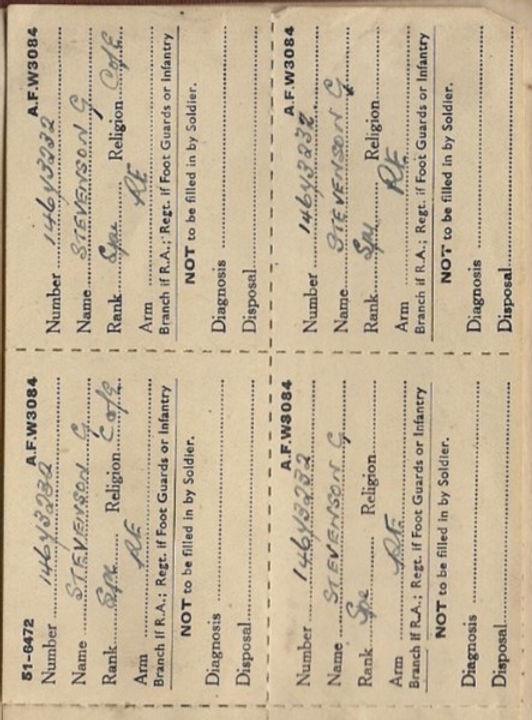 51-6472 A.F.W3084
Number 14643232
Name STEVENSON G
Rank Spr Religion C of E
Arm RE
Branch if R.A.; Regt. if Foot Guards or Infantry
NOT to be filled in by Soldier.
Diagnosis
Disposal
A.F.W3084
Number 14643232
Name STEVENSON G
Rank Spr Religion C of E
Arm RE
Branch if R.A.; Regt. if Foot Guards or Infantry
NOT to be filled in by Soldier.
Diagnosis
Disposal
A.F.W3084
Number 14643232
Name STEVENSON G
Rank Spr Religion
Arm RE
Branch if R.A.; Regt. if Foot Guards or Infantry
NOT to be filled in by Soldier.
Diagnosis
Disposal
A.F.W3084
Number 14643232
Name STEVENSON G
Rank Spr Religion
Arm RE
Branch if R.A.; Regt. if Foot Guards or Infantry
NOT to be filled in by Soldier.
Diagnosis
Disposal